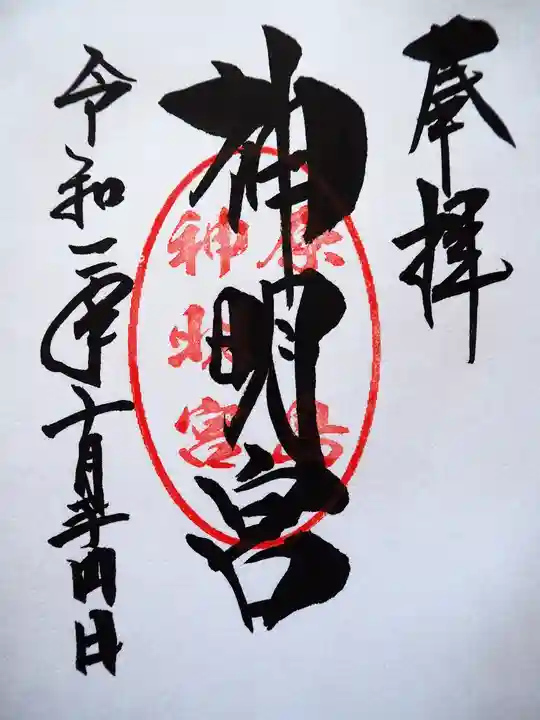 奉拝
神明宮
神明宮
令和二年十月二十四日